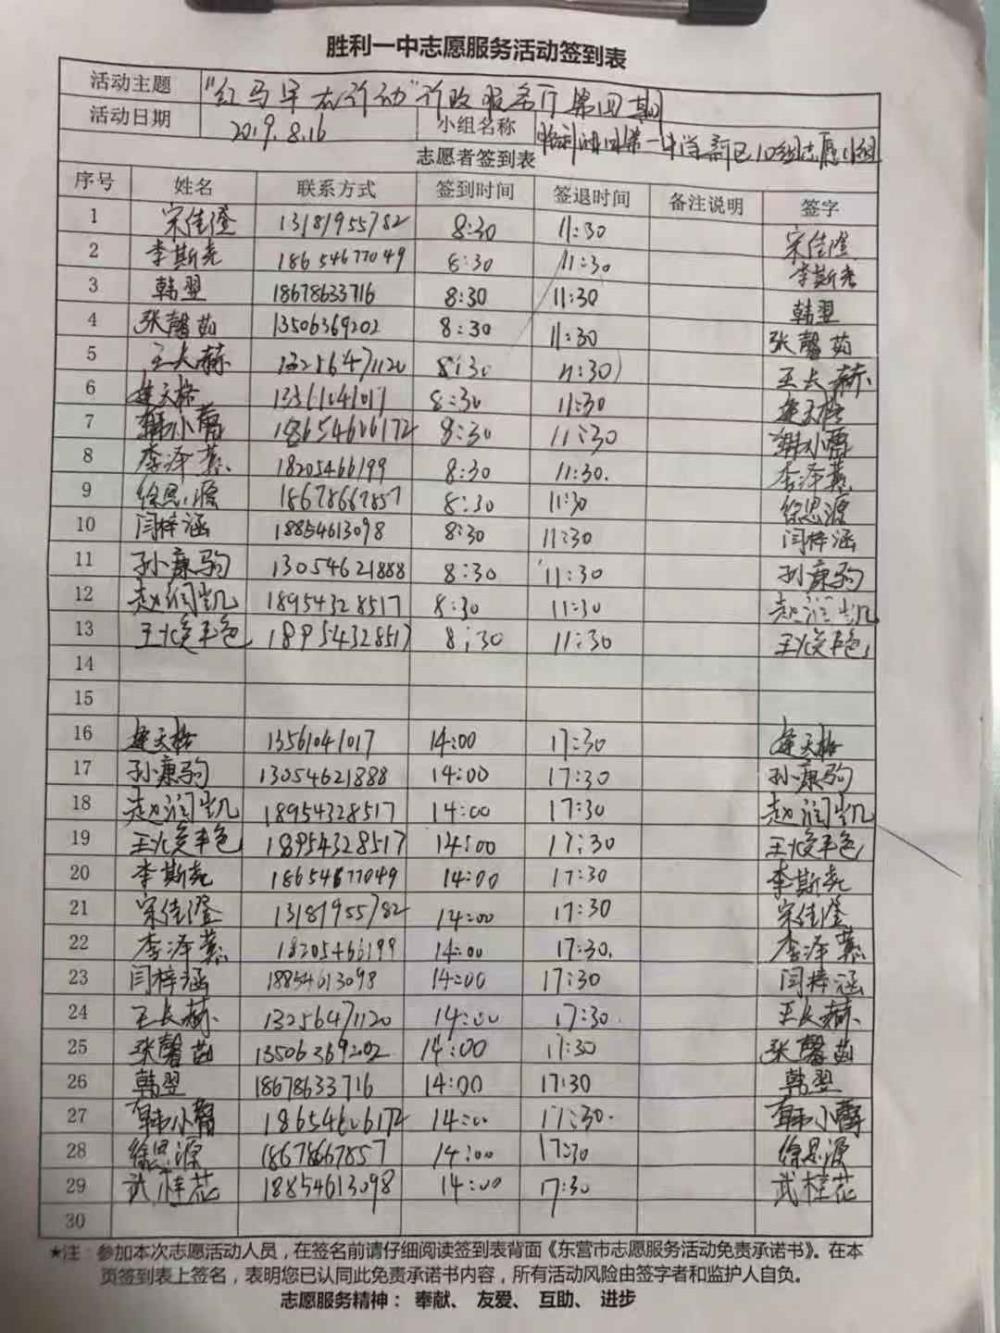 胜利一中志愿服务活动签到表
活动主题 "红马甲在行动"行政服务厅第四期
活动日期 2019.8.16 小组名称 胜利油田第一中学
志愿者签到表
序号 姓名 联系方式 签到时间 签退时间 备注说明 签字
1 宋佳澄 13181955782 8:30 11:30 宋佳澄
2 李斯尧 18654677049 8:30 11:30 李斯尧
3 韩翌 18678633716 8:30 11:30 韩翌
4 张馨茹 13506369202 8:30 11:30 张馨茹
5 王长赫 13256471120 8:30 11:30 王长赫
6 楚天格 13561041017 8:30 11:30 楚天格
7 韩小蕾 18654606172 8:30 11:30 韩小蕾
8 李泽慕 18205466199 8:30 11:30. 李泽慕
9 徐思源 18678667857 8:30 11:30 徐思源
10 闫梓涵 18854613098 8:30 11:30 闫梓涵
11 孙康驹 13054621888 8:30 11:30 孙康驹
12 赵润凯 18954328517 8:30 11:30 赵润凯
13 王 18954328517 8:30 11:30 王
14
15
16 楚天格 13561041017 14:00 17:30 楚天格
17 孙康驹 13054621888 14:00 17:30 孙康驹
18 赵润凯 18954328517 14:00 17:30 赵润凯
19 王 18954328517 14:00 17:30 王
20 李斯尧 18654677049 14:00 17:30 李斯尧
21 宋佳澄 13181955782 14:00 17:30 宋佳澄
22 李泽慕 18205466199 14:00 17:30. 李泽慕
23 闫梓涵 18854613098 14:00 17:30 闫梓涵
24 王长赫 13256471120 14:00 17:30. 王长赫
25 张馨茹 13506369202 14:00 17:30 张馨茹
26 韩翌 18678633716 14:00 17:30 韩翌
27 韩小蕾 18654606172 14:00 17:30. 韩小蕾
28 徐思源 18678667857 14:00 17:30 徐思源
29 武桂花 18854613098 14:00 17:30 武桂花
30
★注：参加本次志愿活动人员，在签名前请仔细阅读签到表背面《东营市志愿服务活动免责承诺书》。在本
页签到表上签名，表明您已认同此免责承诺书内容，所有活动风险由签字者和监护人自负。
志愿服务精神： 奉献、 友爱、 互助、 进步